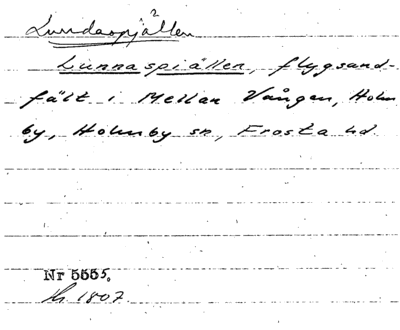 Lundaspjällen
Lunnaspiällen, flygsand-
fält i Mellan Vången, Holm
by, Holmby sn, Frosta hd
Nr 5555.
1807